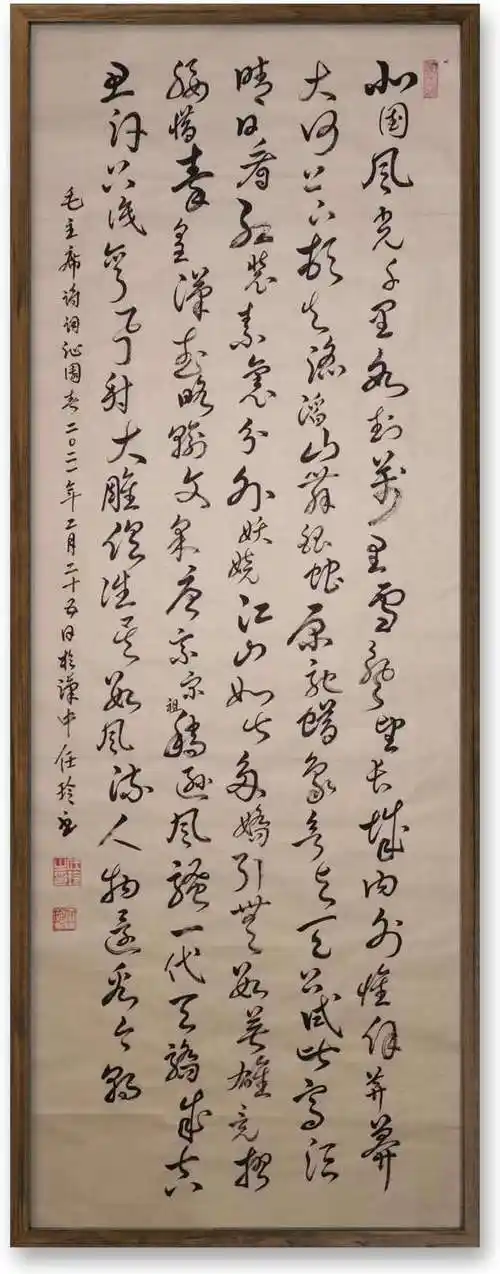 北国风光千里冰封萬里雪飘望长城内外惟余莽莽
大河上下顿失滔滔山舞银蛇原驰蜡象欲与天公试比高须
晴日看红装素裹分外妖娆江山如此多嬌引無数英雄竞折
腰惜秦皇漢武略输文采唐宗宋祖稍逊风骚一代天骄成吉
思汗只识弯弓射大雕俱往矣数风流人物还看今朝
毛主席诗词沁園春二〇二一年二月二十五日於漢中任玲书